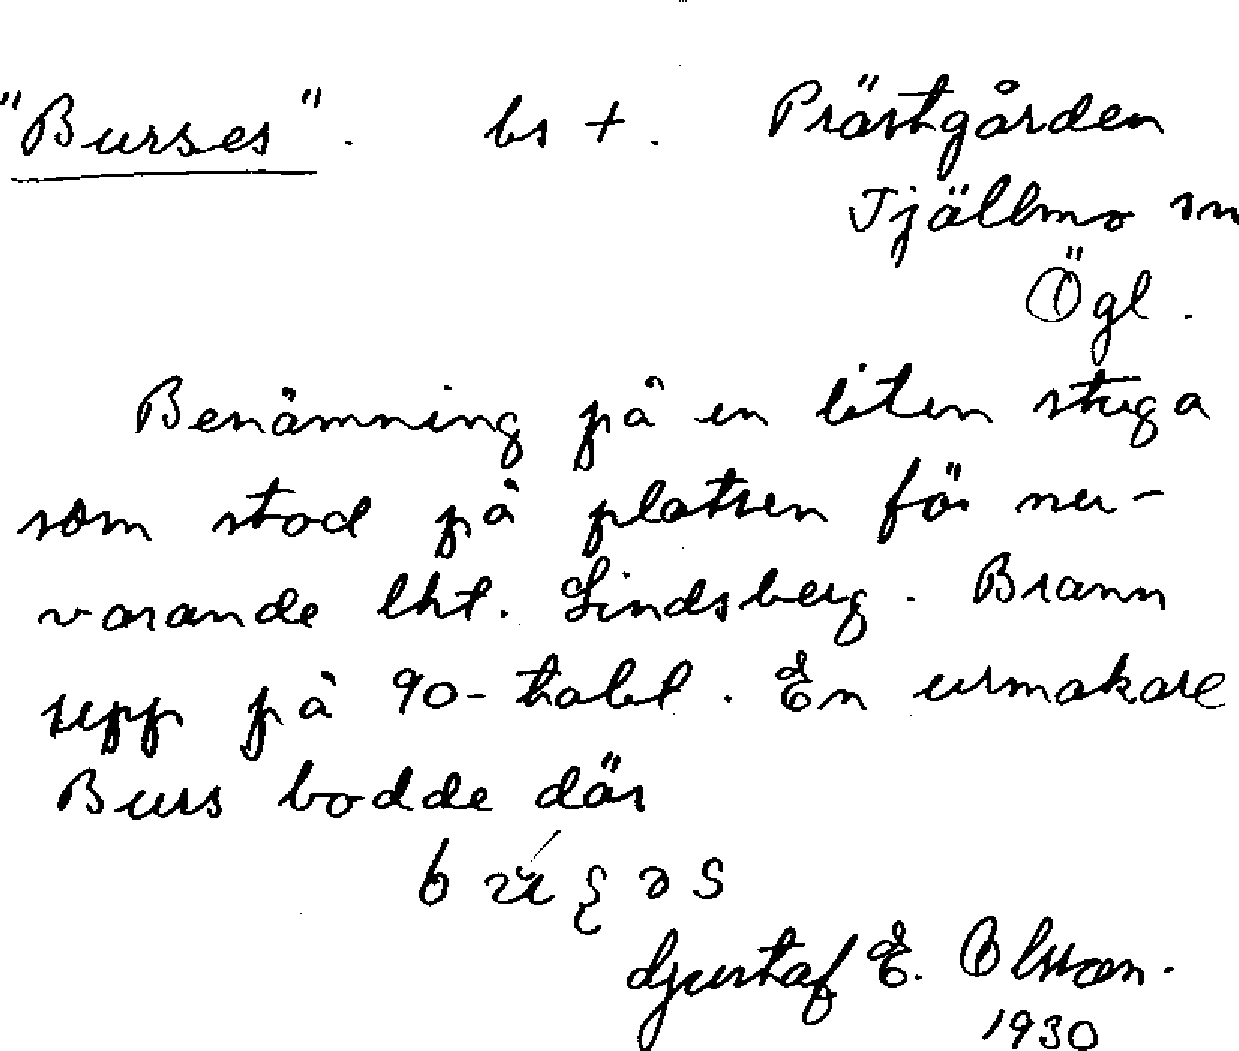 "Burses". bs +. Prästgården
Tjällmo sn
Ögl.
Benämning på en liten stuga
som stod på platsen för nu-
varande lht. Lindsberg. Brann
upp på 90-talet. En urmakare
Burs bodde där
Gustaf E. Olsson.
1930